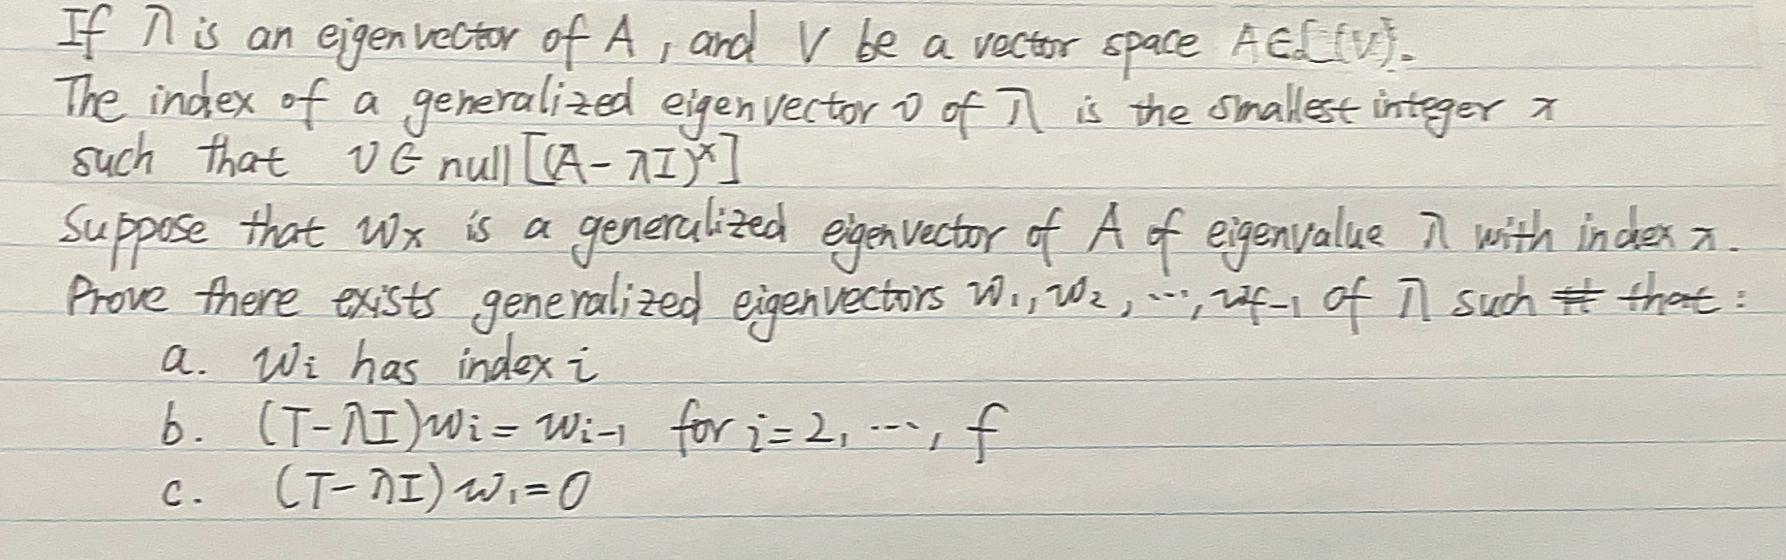 If λ is an eigenvector of A, and V be a vector space A∈L(V).
The index of a generalized eigenvector v of λ is the smallest integer x
such that v∈null[(A-λI)^x]
Suppose that w_x is a generalized eigenvector of A of eigenvalue λ with index x.
Prove there exists generalized eigenvectors w_1, w_2, ..., w_{f-1} of λ such that:
a. w_i has index i
b. (T-λI)w_i = w_{i-1} for i=2, ..., f
c. (T-λI)w_1=0